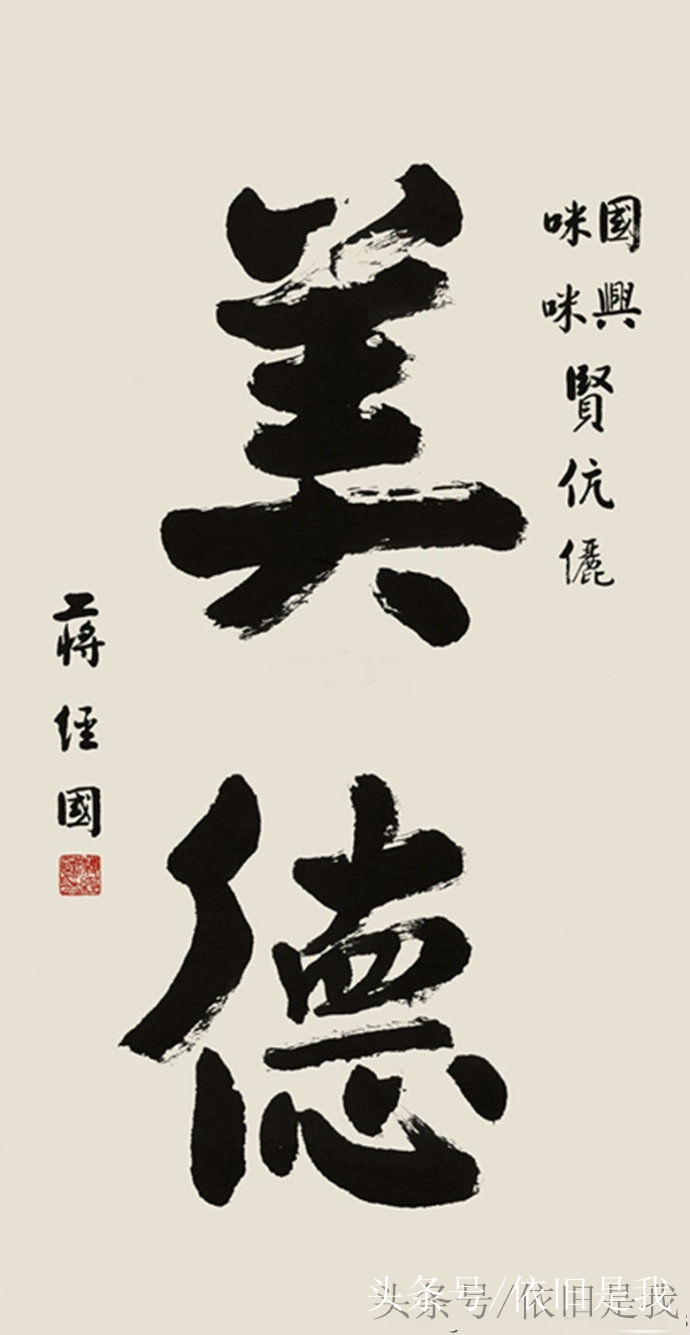 國興
咪咪
賢伉儷
美德
蔣經國
头条号/依旧是我